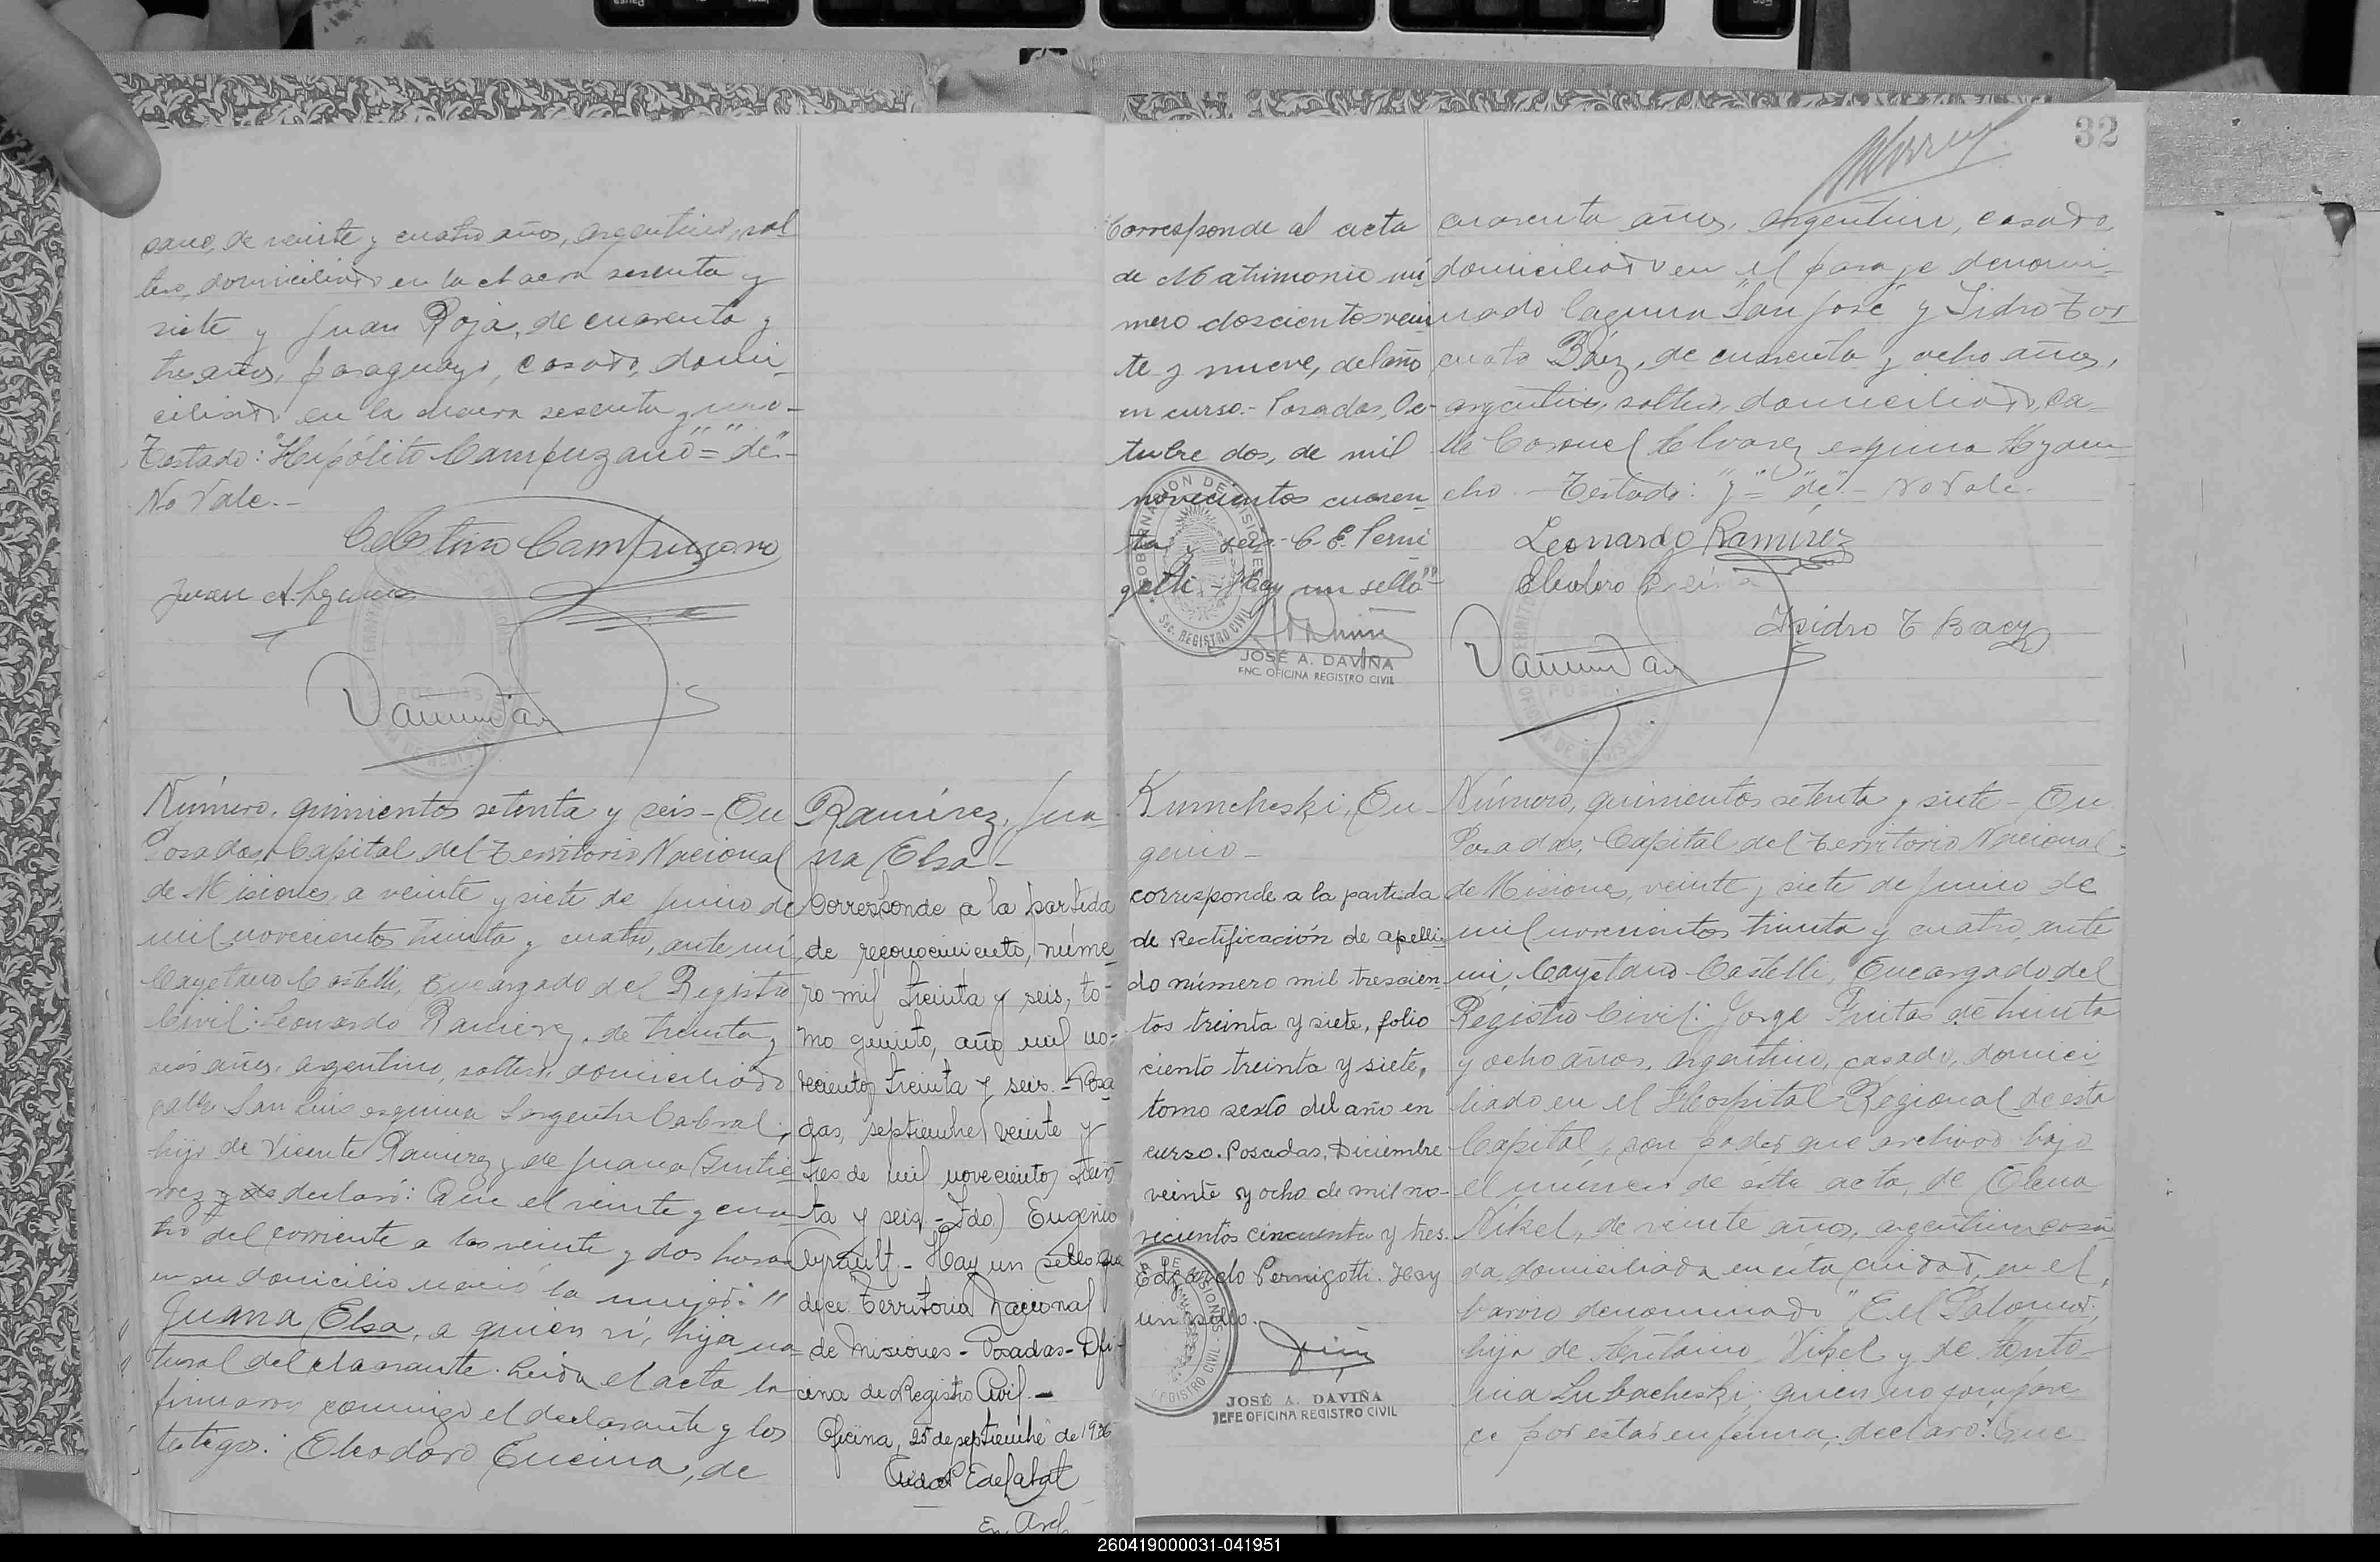 cano, de veinte y cuatro años, argentino, sol
tero, domiciliado en la chacra sesenta y
siete y Juan Roja, de cuarenta y
tres años, paraguayo, casado, domi-
ciliado en la chacra sesenta y uno-
Testado: "Hipólito Campuzano" = "de" -
No Vale.-
Celestino Campuzano
Número, quinientos setenta y seis - En
Posadas, Capital del Territorio Nacional
de Misiones, a veinte y siete de Junio de
mil novecientos treinta y cuatro, ante mí,
Cayetano Castelli, Encargado del Registro
Civil: Leonardo Ramirez, de treinta y
seis años, argentino, soltero, domiciliado
calle San Luis esquina Sargento Cabral,
hijo de Vicente Ramirez y de Juana Gutie
rrez y de declaró: Que el veinte y cua-
tro del corriente a las veinte y dos horas
en su domicilio nació la mujer:"
Juana Elsa, a quien ví, hija na-
tural del declarante. Leida el acta la
firmaron conmigo el declarante y los
testigos: Eleodoro Encina, de
Ramírez, Jua-
na Elsa-
Corresponde a la partida
de reconocimiento, núme-
ro mil treinta y seis, to-
mo quinto, año mil no-
vecientos treinta y seis. - Posa
das, septiembre veinte y
tres de mil novecientos trein
ta y seis - Fdo.) Eugenio
- Hay un sello que
dice: Territorio Nacional
de Misiones - Posadas - Ofi-
cina de Registro Civil. -
Oficina, 25 de septiembre de 1936
32
Corresponde al acta
de Matrimonio nú
mero doscientos vein
te y nueve, del año
en curso.- Posadas, Oc-
tubre dos, de mil
novecientos cuaren
ta y seis.- C. E. Perni
gotti - Hay un sello"
GOBERNACION DE MISIONES
Sec. REGISTRO CIVIL
JOSÉ A. DAVIÑA
ENC. OFICINA REGISTRO CIVIL
cuarenta años, argentino, casado,
domiciliado en el paraje denomi-
nado laguna "San José" y Isidro Tor
cuato Báez, de cuarenta y ocho años,
argentino, soltero, domiciliado, ca-
lle Coronel Alvarez esquina Ayacu-
cho. - Testado: "y" = "de" - No Vale.
Leonardo Ramirez
Eleodoro
Isidro T Baez
POSADAS
Kumcheski, Eu-
genio-
corresponde a la partida
de Rectificación de apelli-
do número mil trescien-
tos treinta y siete, folio
ciento treinta y siete,
tomo sexto del año en
curso. Posadas, Diciembre
veinte y ocho de mil no-
vecientos cincuenta y tres.
Edgardo Pernigotti. Hay
un sello.
REGISTRO CIVIL
JOSÉ A. DAVIÑA
JEFE OFICINA REGISTRO CIVIL
Número, quinientos setenta y siete - En
Posadas, Capital del Territorio Nacional
de Misiones, veinte y siete de Junio de
mil novecientos treinta y cuatro, ante
mí, Cayetano Castelli, Encargado del
Registro Civil: Jorge Freitas de treinta
y ocho años, argentino, casado, domici
liado en el Hospital Regional de esta
Capital, con poder que archivo bajo
el número de ésta acta, de Elena
Nikel, de veinte años, argentina casa
da domiciliada en esta ciudad, en el
barrio denominado "El Palomar",
hija de Antonio Nikel y de Anto-
nia Lubacheski, quien no compare
ce por estar enferma, declaró: Que
260419000031-041951